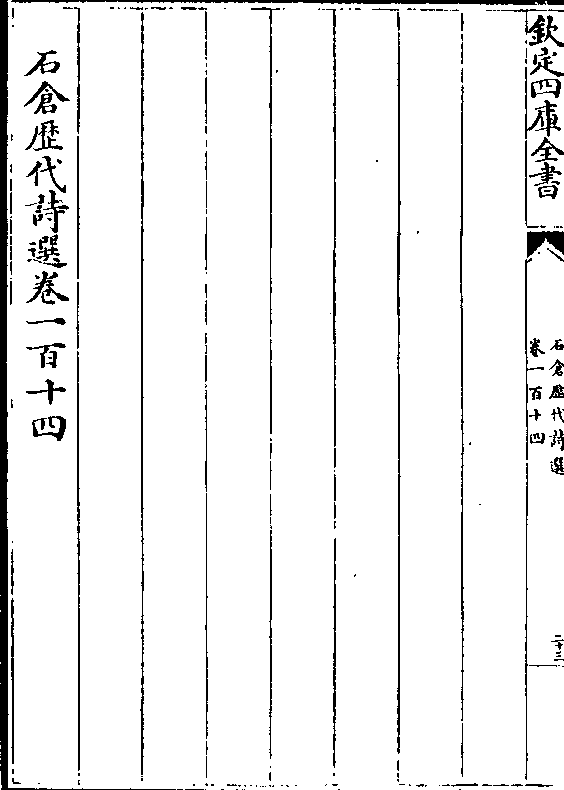 欽定四庫全書
石倉歷代詩選
卷一百十四
二十三
石倉歷代詩選卷一百十四